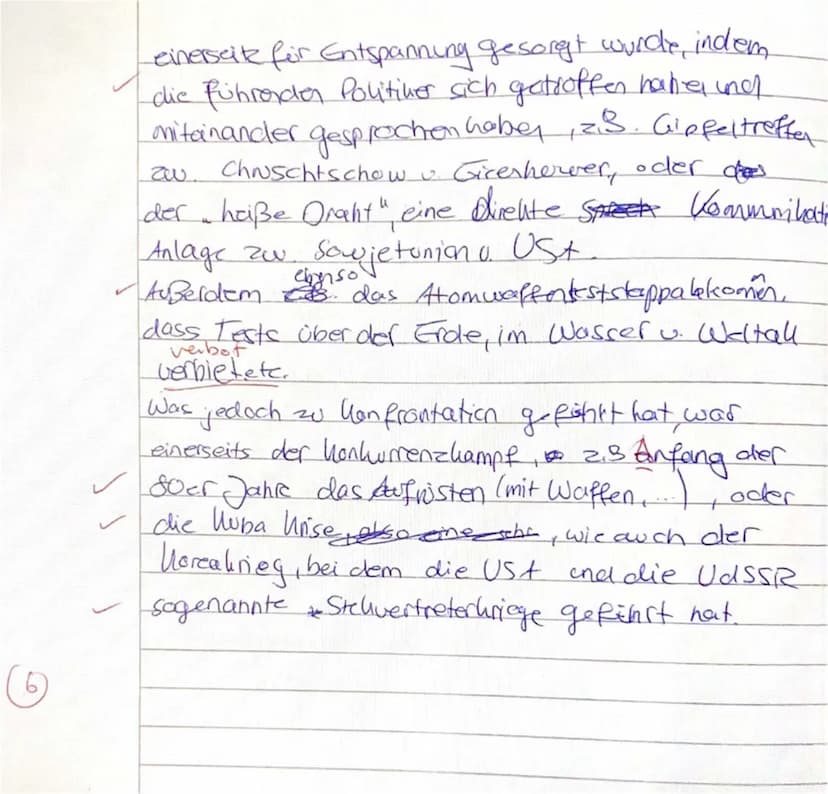 einerseits für Entspannung gesorgt wurde, indem
die führenden Politiker sich getroffen haben und
miteinander gesprochen haben, z.B. Gipfeltreffen
zw. Chruschtschow u. Eisenhower, oder
der „heiße Draht", eine direkte Kommunikati
Anlage zw. Sowjetunion u. USA.
ebenso
Außerdem das Atomwaffenteststoppabkomm̃en,
dass Tests über der Erde, im Wasser u. Weltall
verbot
verbietete.
Was jedoch zu Konfrontation geführt hat, war
einerseits der Konkurrenzkampf, z.B Anfang der
80er Jahre das Aufrüsten (mit Waffen, ...), oder
die Kuba Krise, wie auch der
Koreakrieg, bei dem die USA und die UdSSR
sogenannte Stellvertreterkriege geführt hat.
6